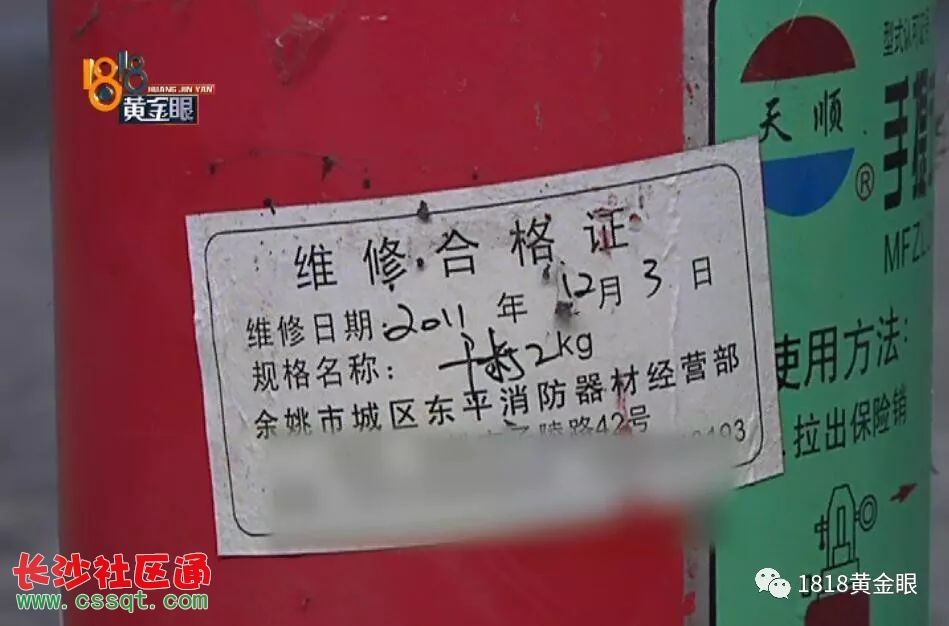 1818
HUANG JIN YAN
黄金眼
维修合格证
维修日期:2011年12月3日
规格名称: 2kg
余姚市城区东平消防器材经营部
子陵路42号
天顺
®
型式认可证
手提
MFZL
使用方法:
拉出保险销
长沙社区通
www.cssqt.com
1818黄金眼